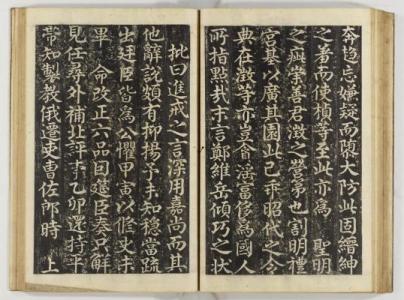 奔趍忘嫌疑而隳大防此固縉紳
之羞而使楨等至此亦爲 聖明
之疵崇善君澂之營第也割明禮
宮基以廣其園此已乖昭代之令
典在澂等亦豈富侈爲國人
所指點哉末言鄭維岳傾巧之狀
批曰進戒之言深用嘉尚而其
他辭說頗有抑揚予未知穩當疏
出廷臣皆爲公懼甲寅以修史未
畢 命改正六品因筵臣奏只解
見任尋外補北評事乙卯還持平
帶知製敎俄遷吏曹佐郎時 上